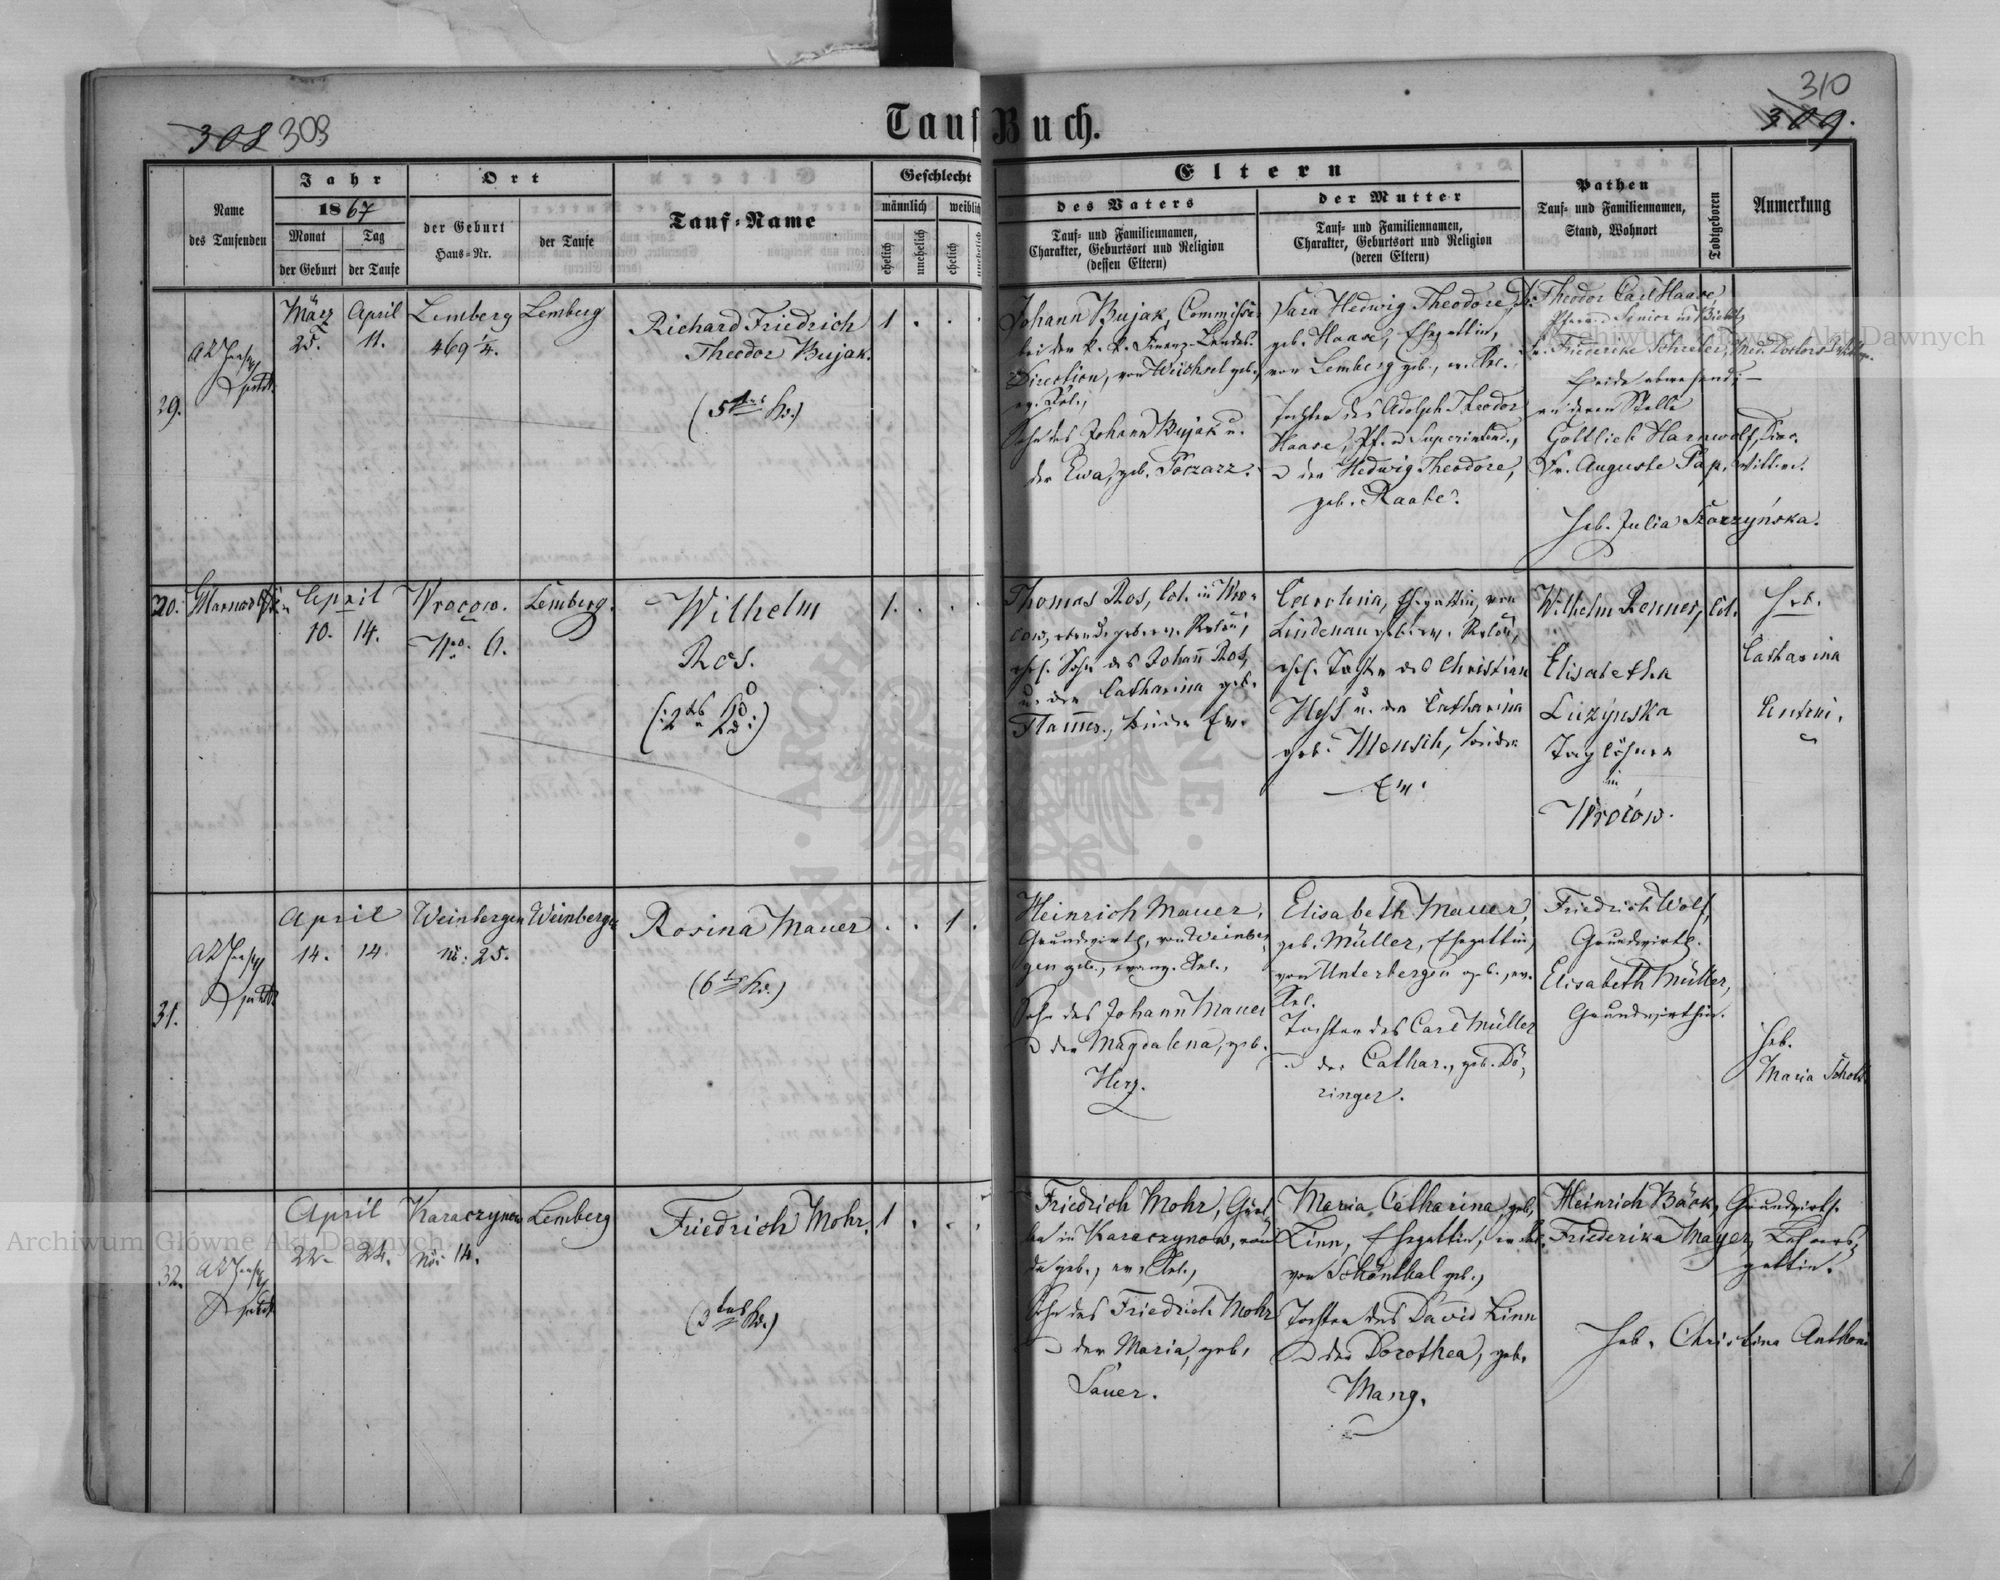 308 309
310
309.
Tauf Buch.
Name
des Taufenden
Jahr
1867
Monat
der Geburt
Tag
der Taufe
Ort
der Geburt
Haus-Nr.
der Taufe
Tauf-Name
Geschlecht
männlich
weiblich
ehelich
unehelich
ehelich
unehelich
Eltern
des Vaters
Tauf- und Familiennamen,
Charakter, Geburtsort und Religion
(dessen Eltern)
der Mutter
Tauf- und Familiennamen,
Charakter, Geburtsort und Religion
(deren Eltern)
Pathen
Tauf- und Familiennamen,
Stand, Wohnort
Todtgeboren
Anmerkung
29.
März
25.
April
11.
Lemberg
469 1/4.
Lemberg
Richard Friedrich
Theodor Bujak.
(5tes Kd.)
1 . . .
Johann Bujak, Commissär
bei der k. k. Finanz-Landes-
Direction, von Weichsel geb.,
ev. Rel.,
Sohn des Johann Bujak u.
der Ewa, geb. Poczarz.
Sara Hedwig Theodore,
geb. Haase, Ehegattin,
von Lemberg geb., ev. Rel.,
Tochter des Adolph Theodor
Haase, Pf. u Superintend.,
u der Hedwig Theodore,
geb. Raabe.
Dr. Theodor Carl Haase,
Pfarr. u Senior in Bielitz
Fr. Friederike Schreier, Med. Doctors
Beide abwesend; —
an deren Stelle
Gottlieb Harnwolf, Direc.
Fr. Auguste Pap, Wittwe.
Heb. Julia Skarzyńska.
30.
April
10. 14.
Wrocow.
Nro. 6.
Lemberg.
Wilhelm
Ros.
(:2tes Kd:)
1. . . .
Thomas Ros, Col. in Wro-
cow, ebends. geb. ev. Relön,
ehel. Sohn des Johann Ros,
u. der Catharina geb.
Flamer., beide Ev.
Carolina, Ehegattin, von
Lindenau geb. ev. Relön,
ehel. Tochter des Christian
Hess u. der Catharina
geb. Mensch, beide
Ev.
Wilhelm Renner, Col.
Elisabetha
Luzynska
Taglöhner
in
Wrocow.
Heb.
Catharina
Antoni.
31.
April
14. 14.
Weinbergen
N: 25.
Weinbergen
Rosina Mauer
(6tes Kd.)
. . 1 .
Heinrich Mauer,
Grundwirth, von Weinber-
gen geb., evang. Rel.,
Sohn des Johann Mauer
u der Magdalena, geb.
Herz.
Elisabeth Mauer,
geb. Müller, Ehegattin,
von Unterbergen geb., ev.
Rel.
Tochter des Carl Müller
u der Cathar., geb. Dö-
ringer.
Friedrich Wolf,
Grundwirth.
Elisabeth Müller,
Grundwirthin.
Heb.
Maria Scholl
32.
April
22. 24.
Karaczynow
No: 14.
Lemberg
Friedrich Mohr.
(2tes Kd.)
1 . . .
Friedrich Mohr,
in Karaczynow, von
da geb., ev. Rel.,
Sohn des Friedrich Mohr
u der Maria, geb.
Sauer.
Maria Catharina, geb.
Linn, Ehegattin, ev. Rel.
von Schönthal geb.,
Tochter des David Linn
u der Dorothea, geb.
Mang.
Heinrich Bäck, Grundwirth.
Friederika Mayer, Lehrers-
gattin.
Heb. Christina Anthoni
Archiwum Główne Akt Dawnych
Archiwum Główne Akt Dawnych